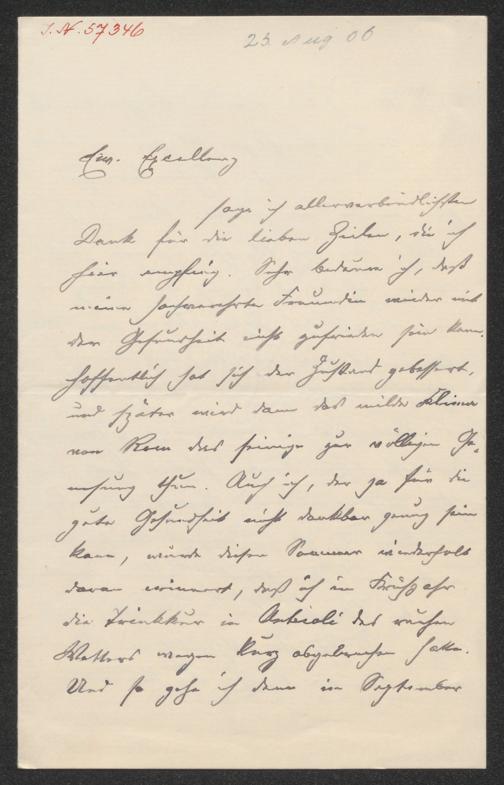 I. N. 57346
25. Aug 06
Euer. Excellenz
sage ich allerverbindlichsten
Dank für die lieben Zeilen, die ich
hier empfing. Sehr bedaure ich, daß
meine hochverehrte Freundin wieder mit
der Gesundheit nicht zufrieden sein kann.
Hoffentlich hat sich der Zustand gebessert,
und später wird dann das milde Klima
von Rom das seinige zur völligen Ge-
nesung thun. Auch ich, der ja für die
gute Gesundheit nicht dankbar genug sein
kann, wurde diesen Sommer wiederholt
daran erinnert, daß ich im Frühjahr
die Trinkkur in des rauhen
Wetters wegen kurz abgebrochen hatte.
Und so gehe ich denn im September